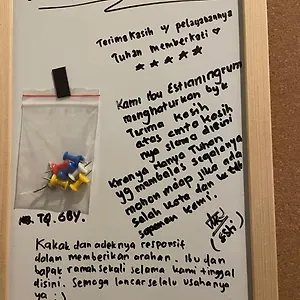 Terima kasih u/ pelayanannya
Tuhan memberkati
Kami Ibu Estiningrum
menghaturkan byk
Terima kasih
atas cinta kasih
nya slama disini
Kiranya Hanya Tuhan
yg membalas segalanya
mohon maap jika ada
salah kata dan
kami.
NB. TQ. GBY.
Kakak dan adeknya responsif
dalam memberikan arahan. Ibu dan
bapak ramah sekali selama kami tinggal
disini. Semoga lancar selalu usahanya
ya :)